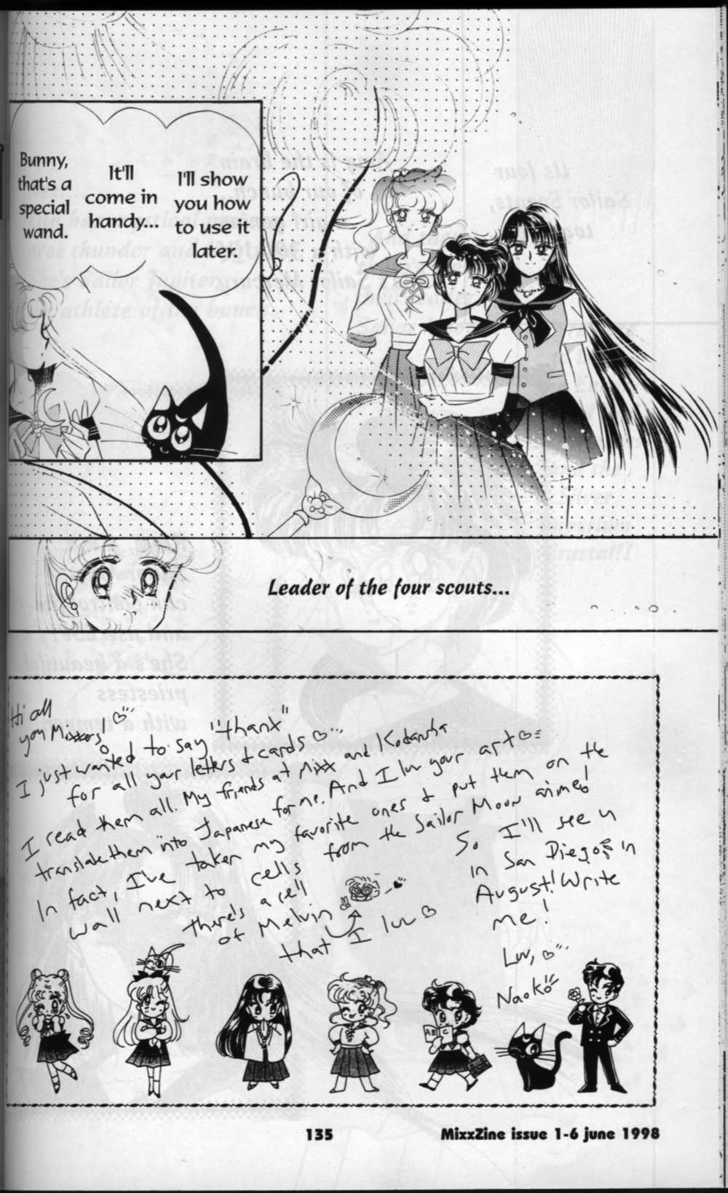 Bunny,
that's a
special
wand.
It'll
come in
handy...
I'll show
you how
to use it
later.
Leader of the four scouts...
Hi all
you Mixxers,
I just wanted to say "thanx"
for all your letters & cards
I read them all. My friends at Mixx and Kodansha
translate them into Japanese for me. And I luv your art
In fact, I've taken my favorite ones & put them on the
wall next to cells from the Sailor Moon anime!
there's a cell
of Melvin
that I luv
So I'll see u
in San Diego in
August! Write
me!
Luv,
Naoko
135
MixxZine issue 1-6 june 1998